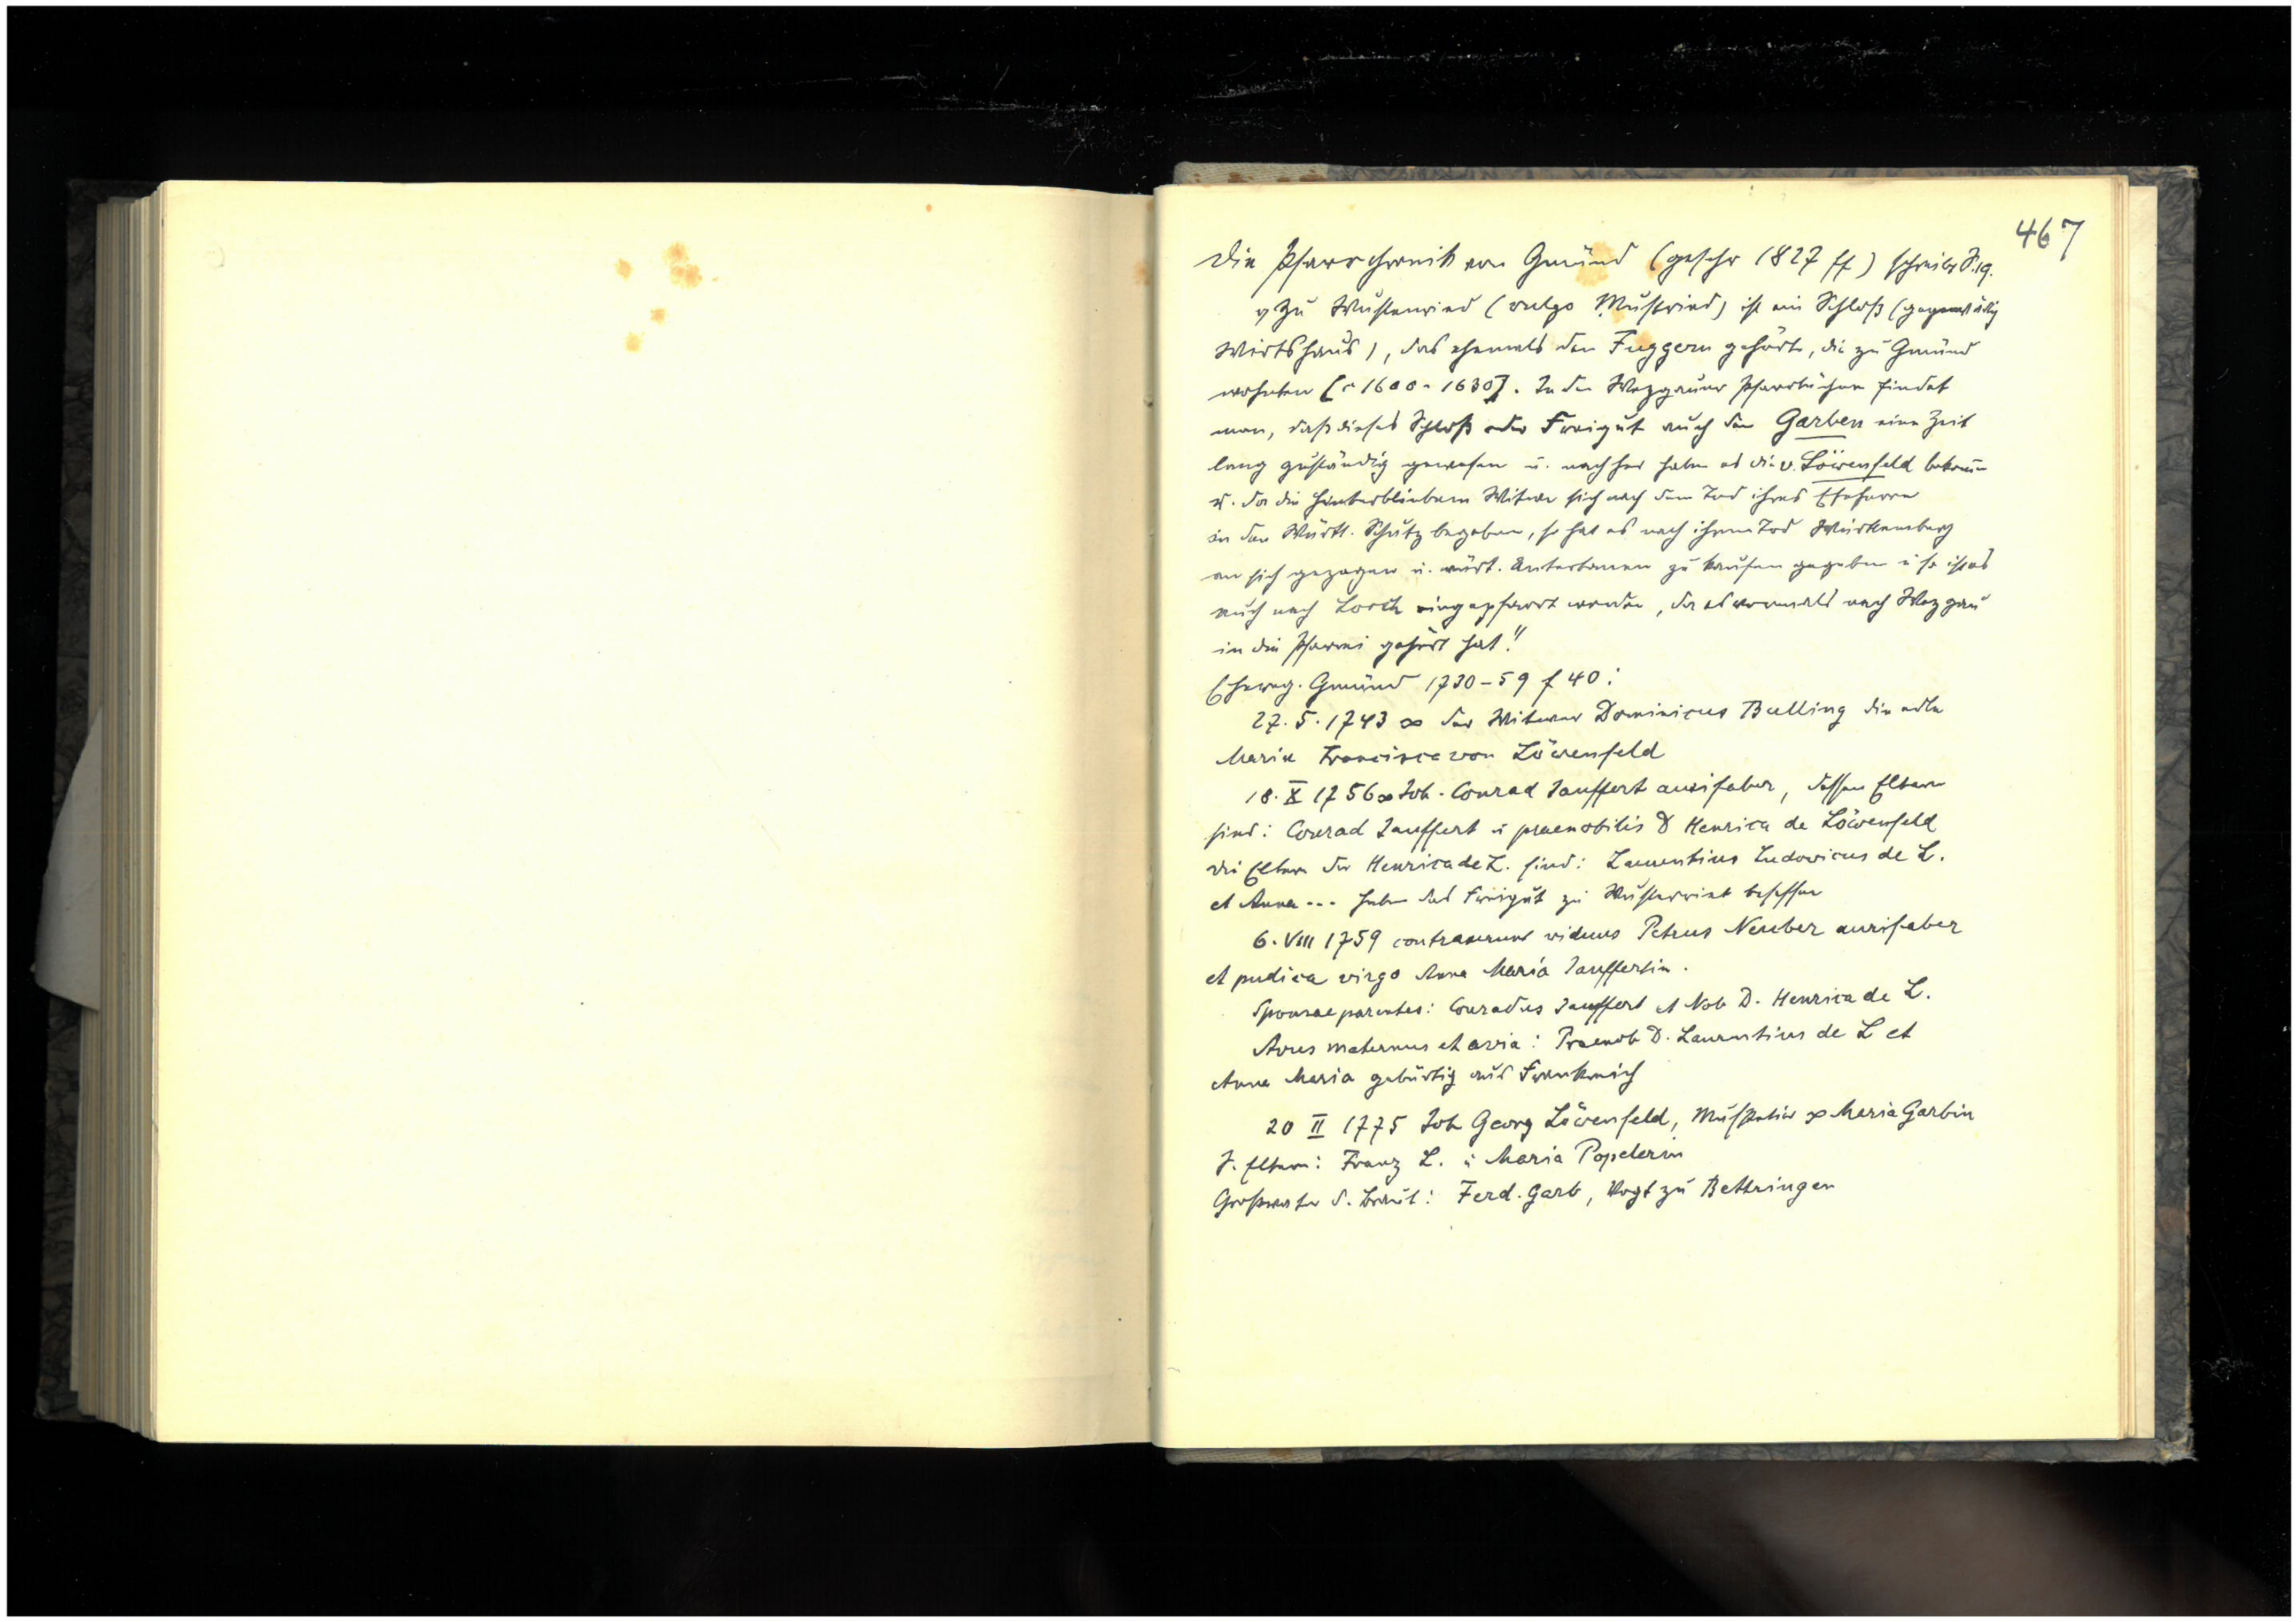 467
Die Pfarrchronik von Gmünd (geschr 1827 ff) schreibt S. 19.
„Zu Wustenried (vulgo Mustried) ist ein Schloß (gegenwärtig
Wirtshaus), das ehemals den Fuggern gehörte, die zu Gmünd
wohnten [c 1600-1630]. In den Wezgauer Pfarrbüchern findet
man, daß dieses Schloß oder Freigut auch den Garben eine Zeit
lang zuständig gewesen u. nachher haben es die v. Löwenfeld bekomm̄
u. da die hinterbliebene Witwe sich nach dem Tod ihres Eheherrn
in den Württ. Schutz begeben, so hat es nach ihrem Tod Württemberg
an sich gezogen u. württ. Untertanen zu kaufen gegeben u so ist es
auch nach Lorch eingepfarrt worden, da es vormals nach Wezgau
in die Pfarrei gehört hat!"
Ehereg. Gmünd 1730-59 f 40:
27. 5. 1743 ∞ der Witwer Dominicus Bulling die edle
Maria Francisca von Löwenfeld
18. X 1756 ∞ Joh. Conrad Jauffert aurifaber, dessen Eltern
sind: Conrad Jauffert u praenobilis D Henrica de Löwenfeld
die Eltern der Henrica de L. sind: Laurentius Ludovicus de L.
et Anna... haben das Freigut zu Wustenriet besessen
6. VIII 1759 contraxerunt viduus Petrus Neuber aurifaber
et pudica virgo Anna Maria Jauffertin.
Sponsae parentes: Conradus Jauffert et Nob D. Henrica de L.
Avus maternus et avia: Praenob D. Laurentius de L et
Anna Maria gebürtig aus Frankreich
20 II 1775 Joh Georg Löwenfeld, Musketier ∞ Maria Garbin
s. Eltern: Franz L. u Maria Popelerin
Großvater d. Braut: Ferd. Garb, Vogt zu Bettringen